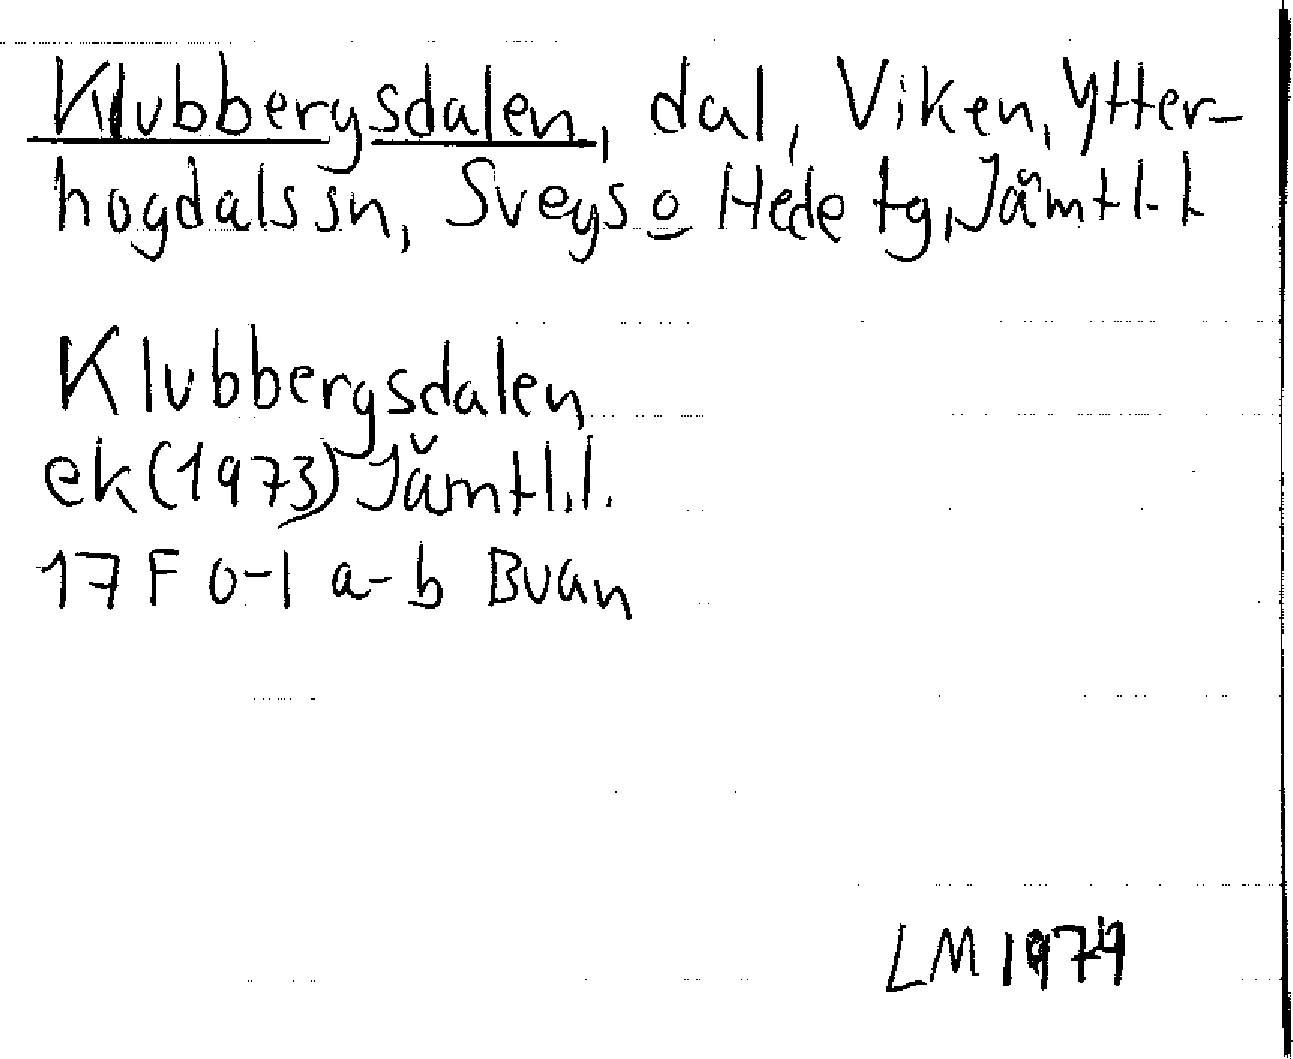 Klubbergsdalen, dal, Viken, Ytter-
hogdals sn, Svegs o Hede tg, Jämtl. l.
Klubbergsdalen
ek (1973) Jämtl. l.
17 F 0-1 a-b Buan
LM 1979